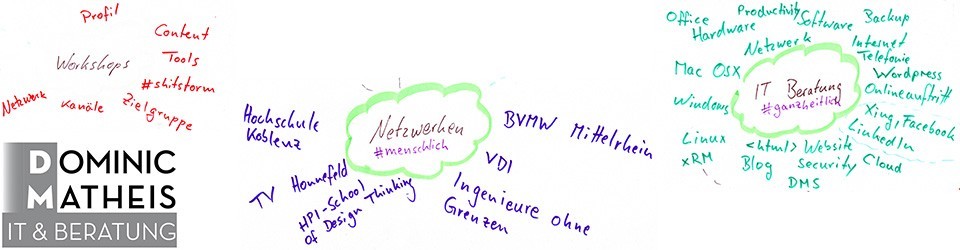 Profil
Content
Workshops
Tools
#shitstorm
Netzwerk
Kanäle
Zielgruppe
DOMINIC
MATHEIS
IT & BERATUNG
Netzwerken
#menschlich
Hochschule
Koblenz
TV Honnefeld
HPI-School
of Design Thinking
BVMW Mittelrhein
VDI
Ingenieure ohne
Grenzen
IT Beratung
#ganzheitlich
Office
Hardware
Productivity
Software
Backup
Netzwerk
Internet
Telefonie
Mac OSX
Wordpress
Onlineauftritt
Windows
Xing, Facebook
LinkedIn
Linux
<html> Website
xRM
Blog
Security
Cloud
DMS